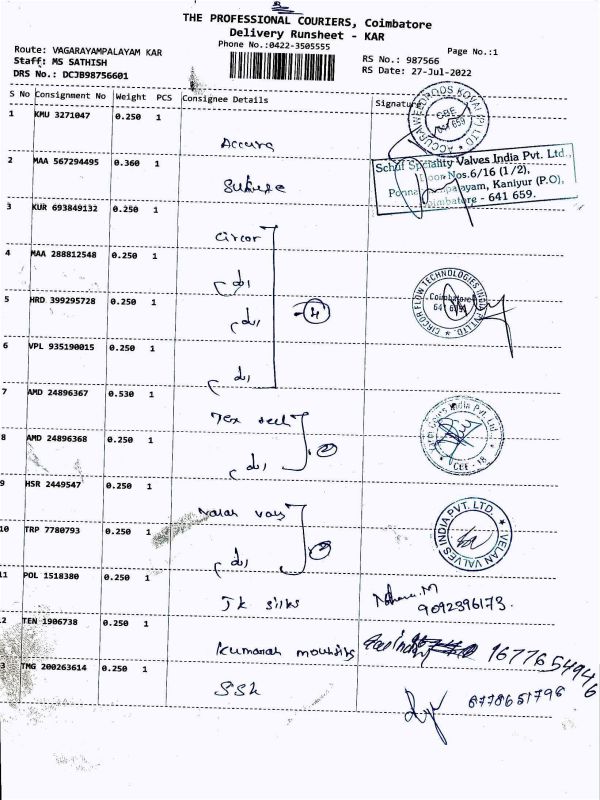 THE PROFESSIONAL COURIERS, Coimbatore
Delivery Runsheet - KAR
Phone No.:0422-3505555
Page No.:1
Route: VAGARAYAMPALAYAM KAR
RS No.: 987566
Staff: MS SATHISH
RS Date: 27-Jul-2022
DRS No.: DCJB98756601
S No Consignment No Weight PCS Consignee Details Signature
1 KMU 3271047 0.250 1
Accura
2 MAA 567294495 0.360 1
Schuf Speciality Valves India Pvt. Ltd.,
Door Nos.6/16 (1/2),
Kaniyur (P.O),
Coimbatore - 641 659.
3 KUR 693849132 0.250 1
Circor
4 MAA 288812548 0.250 1
CIRCOR FLOW TECHNOLOGIES INDIA PVT LTD.
Coimbatore
641 659
4
5 HRD 399295728 0.250 1
6 VPL 935190015 0.250 1
7 AMD 24896367 0.530 1
India Pvt. Ltd.
2
8 AMD 24896368 0.250 1
9 HSR 2449547 0.250 1
VELAN VALVES INDIA PVT. LTD.
10 TRP 7780793 0.250 1
2
11 POL 1518380 0.250 1
JK silks
9092396173.
12 TEN 1906738 0.250 1
Kumaran
13 TMG 200263614 0.250 1
SSK